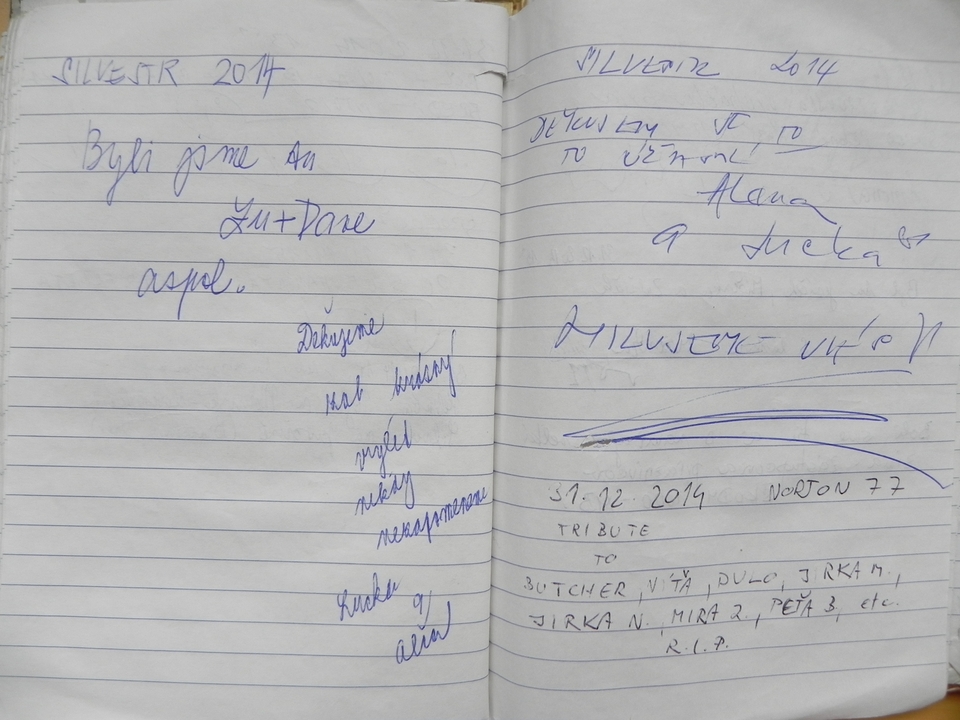 SILVESTR 2014
Byli jsme tu
Zu+Dave
a spol.
Děkujeme
krásný
výlet
nikdy
nezapomeneme
Lucka a
SILVESTR 2014
DĚKUJEM TO
TO
Alena
a Lucka
MILUJEME VÁS
31.12.2014 NORTON 77
TRIBUTE
TO
BUTCHER, VÍŤA, DULO, JIRKA M.,
JIRKA N., MIRA Z., PEŤA B, etc.
R.I.P.